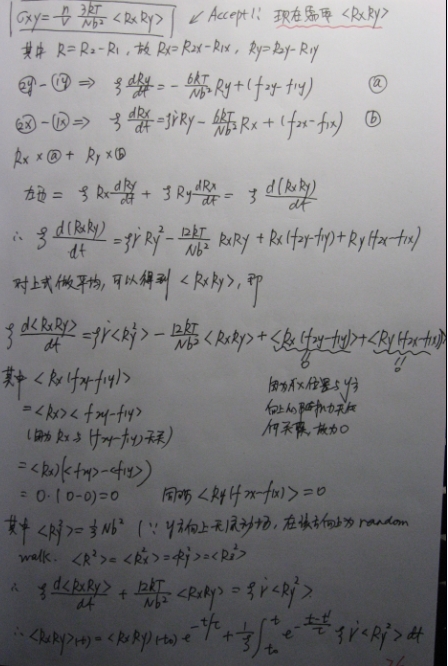 σxy = n/V 3kT/Nb² <RxRy> ↙ Accept!! 现在需要 <RxRy>
其中 R = R₂-R₁, 故 Rx = R₂x-R₁x, Ry = R₂y-R₁y
②y - ①y ⇒ ζ dRy/dt = - 6kT/Nb² Ry + (f₂y-f₁y) ⓐ
②x - ①x ⇒ ζ dRx/dt = ζṙRy - 6kT/Nb² Rx + (f₂x-f₁x) ⓑ
Rx × ⓐ + Ry × ⓑ
左边 = ζ Rx dRy/dt + ζ Ry dRx/dt = ζ d(RxRy)/dt
∴ ζ d(RxRy)/dt = ζṙ Ry² - 12kT/Nb² RxRy + Rx(f₂y-f₁y) + Ry(f₂x-f₁x)
对上式做平均, 可以得到 <RxRy>, 即
ζ d<RxRy>/dt = ζṙ<Ry²> - 12kT/Nb² <RxRy> + <Rx(f₂y-f₁y)> + <Ry(f₂x-f₁x)>
0 0
其中 <Rx(f₂y-f₁y)>
因为 x 位置与 y方
= <Rx><f₂y-f₁y>
向上的随机力无任
(因为 Rx 与 (f₂y-f₁y) 无关)
何关联, 故为0
= <Rx>(<f₂y>-<f₁y>)
= 0·(0-0) = 0 同理 <Ry(f₂x-f₁x)> = 0
其中 <Ry²> = ⅓ Nb² (∵ y方向上无流动场, 在该方向上为 random
walk. <R²> = <Rx²> = <Ry²> = <Rz²>
∴ ζ d<RxRy>/dt + 12kT/Nb² <RxRy> = ζṙ<Ry²>
∴ <RxRy>(t) = <RxRy>(t₀) e^(-t/τ) + 1/ζ ∫t₀^t e^(-(t-t')/τ) ζṙ<Ry²> dt